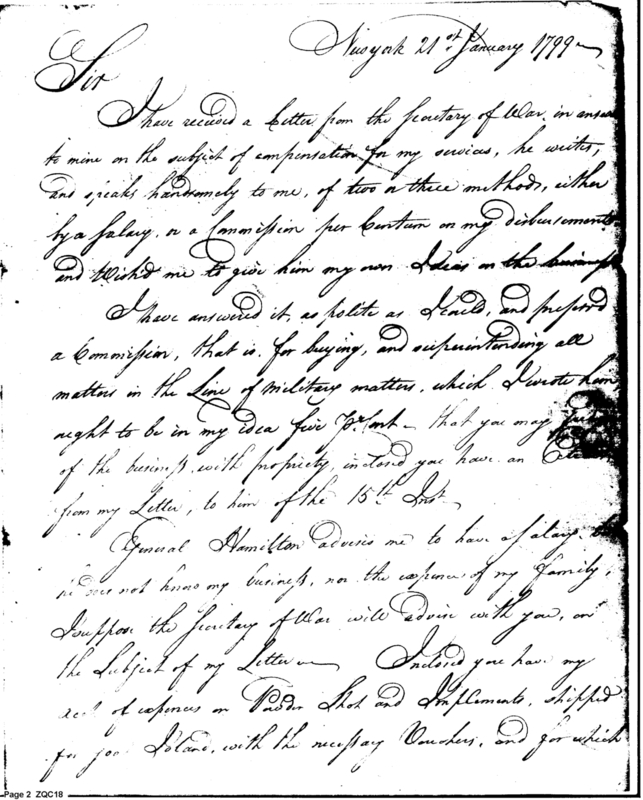 Newyork 21st January 1799
Sir
I have received a Letter from the Secretary of War, in answer
to mine on the subject of compensation for my services, he writes,
and speaks handsomely to me, of two or three methods, either
by a Salary, or a Commission per Centum on my disbursements
and Wish'd me to give him my own Ideas on the business
I have answered it, as polite as I could, and prefered
a Commission, that is, for buying, and superintending all
matters in the Line of military matters, which I wrote him
ought to be in my idea five Pr Cent – that you may
of the business with propriety, inclosed you have an
from my Letter, to him of the 15th Inst
General Hamilton advises me to have a Salary,
he does not know my business, nor the expence of my family,
I suppose the Secretary of War will advise with you, on
the Subject of my Letter — Inclosed you have my
acct of expences on Powder Shot and Implements, shipped
for Island, with the necessary Vouchers, and for which
Page 2 ZQC18